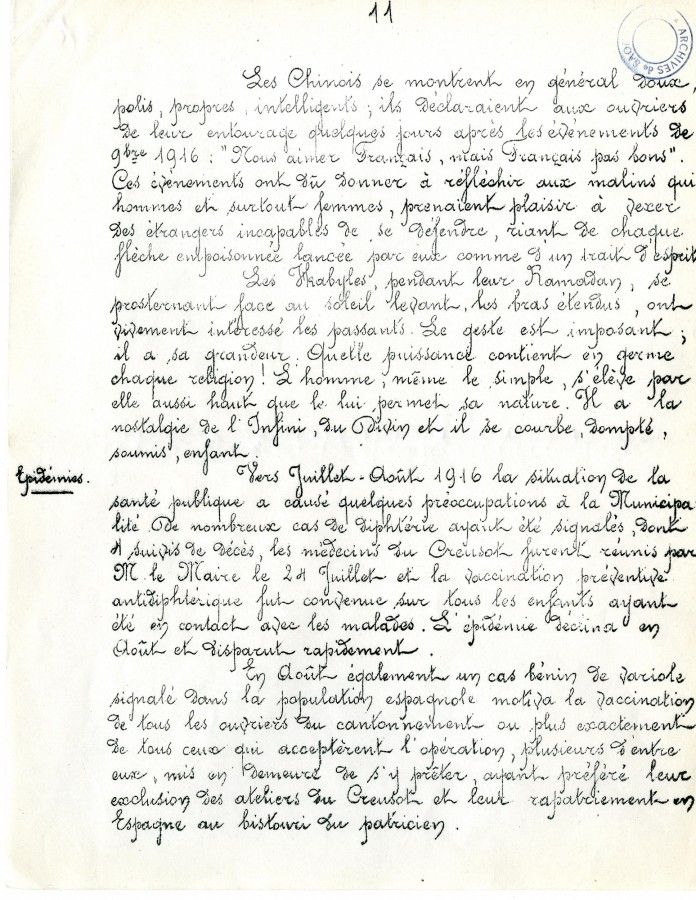 11
ARCHIVES de SAÔ
Les Chinois se montrent en général doux,
polis, propres, intelligents ; ils déclaraient aux ouvriers
de leur entourage quelques jours après les événements de
9bre 1916 : "Nous aimer Français, mais Français pas bons".
Ces événements ont dû donner à réfléchir aux malins qui
hommes et surtout femmes, prenaient plaisir à vexer
des étrangers incapables de se défendre, riant de chaque
flèche empoisonnée lancée par eux comme d'un trait d'esprit
Les Kabyles, pendant leur Ramadan, se
prosternant face au soleil levant, les bras étendus, ont
vivement intéressé les passants. Le geste est imposant ;
il a sa grandeur. Quelle puissance contient en germe
chaque religion ! L'homme, même le simple, s'élève par
elle aussi haut que le lui permet sa nature. Il a la
nostalgie de l'Infini, du Divin et il se courbe, dompté,
soumis, enfant.
Epidémies.
Vers Juillet-Août 1916 la situation de la
santé publique a causé quelques préoccupations à la Municipa
lité De nombreux cas de diphtérie ayant été signalés, dont
4 suivis de décès, les médecins du Creusot furent réunis par
M. le Maire le 24 Juillet et la vaccination préventive
antidiphtérique fut convenue sur tous les enfants ayant
été en contact avec les malades. L'épidémie déclina en
Août et disparut rapidement.
En Août également un cas bénin de variole
signalé dans la population espagnole motiva la vaccination
de tous les ouvriers du cantonnement ou plus exactement
de tous ceux qui acceptèrent l'opération, plusieurs d'entre
eux, mis en demeure de s'y prêter, ayant préféré leur
exclusion des ateliers du Creusot et leur rapatriement en
Espagne au bistouri du patricien.